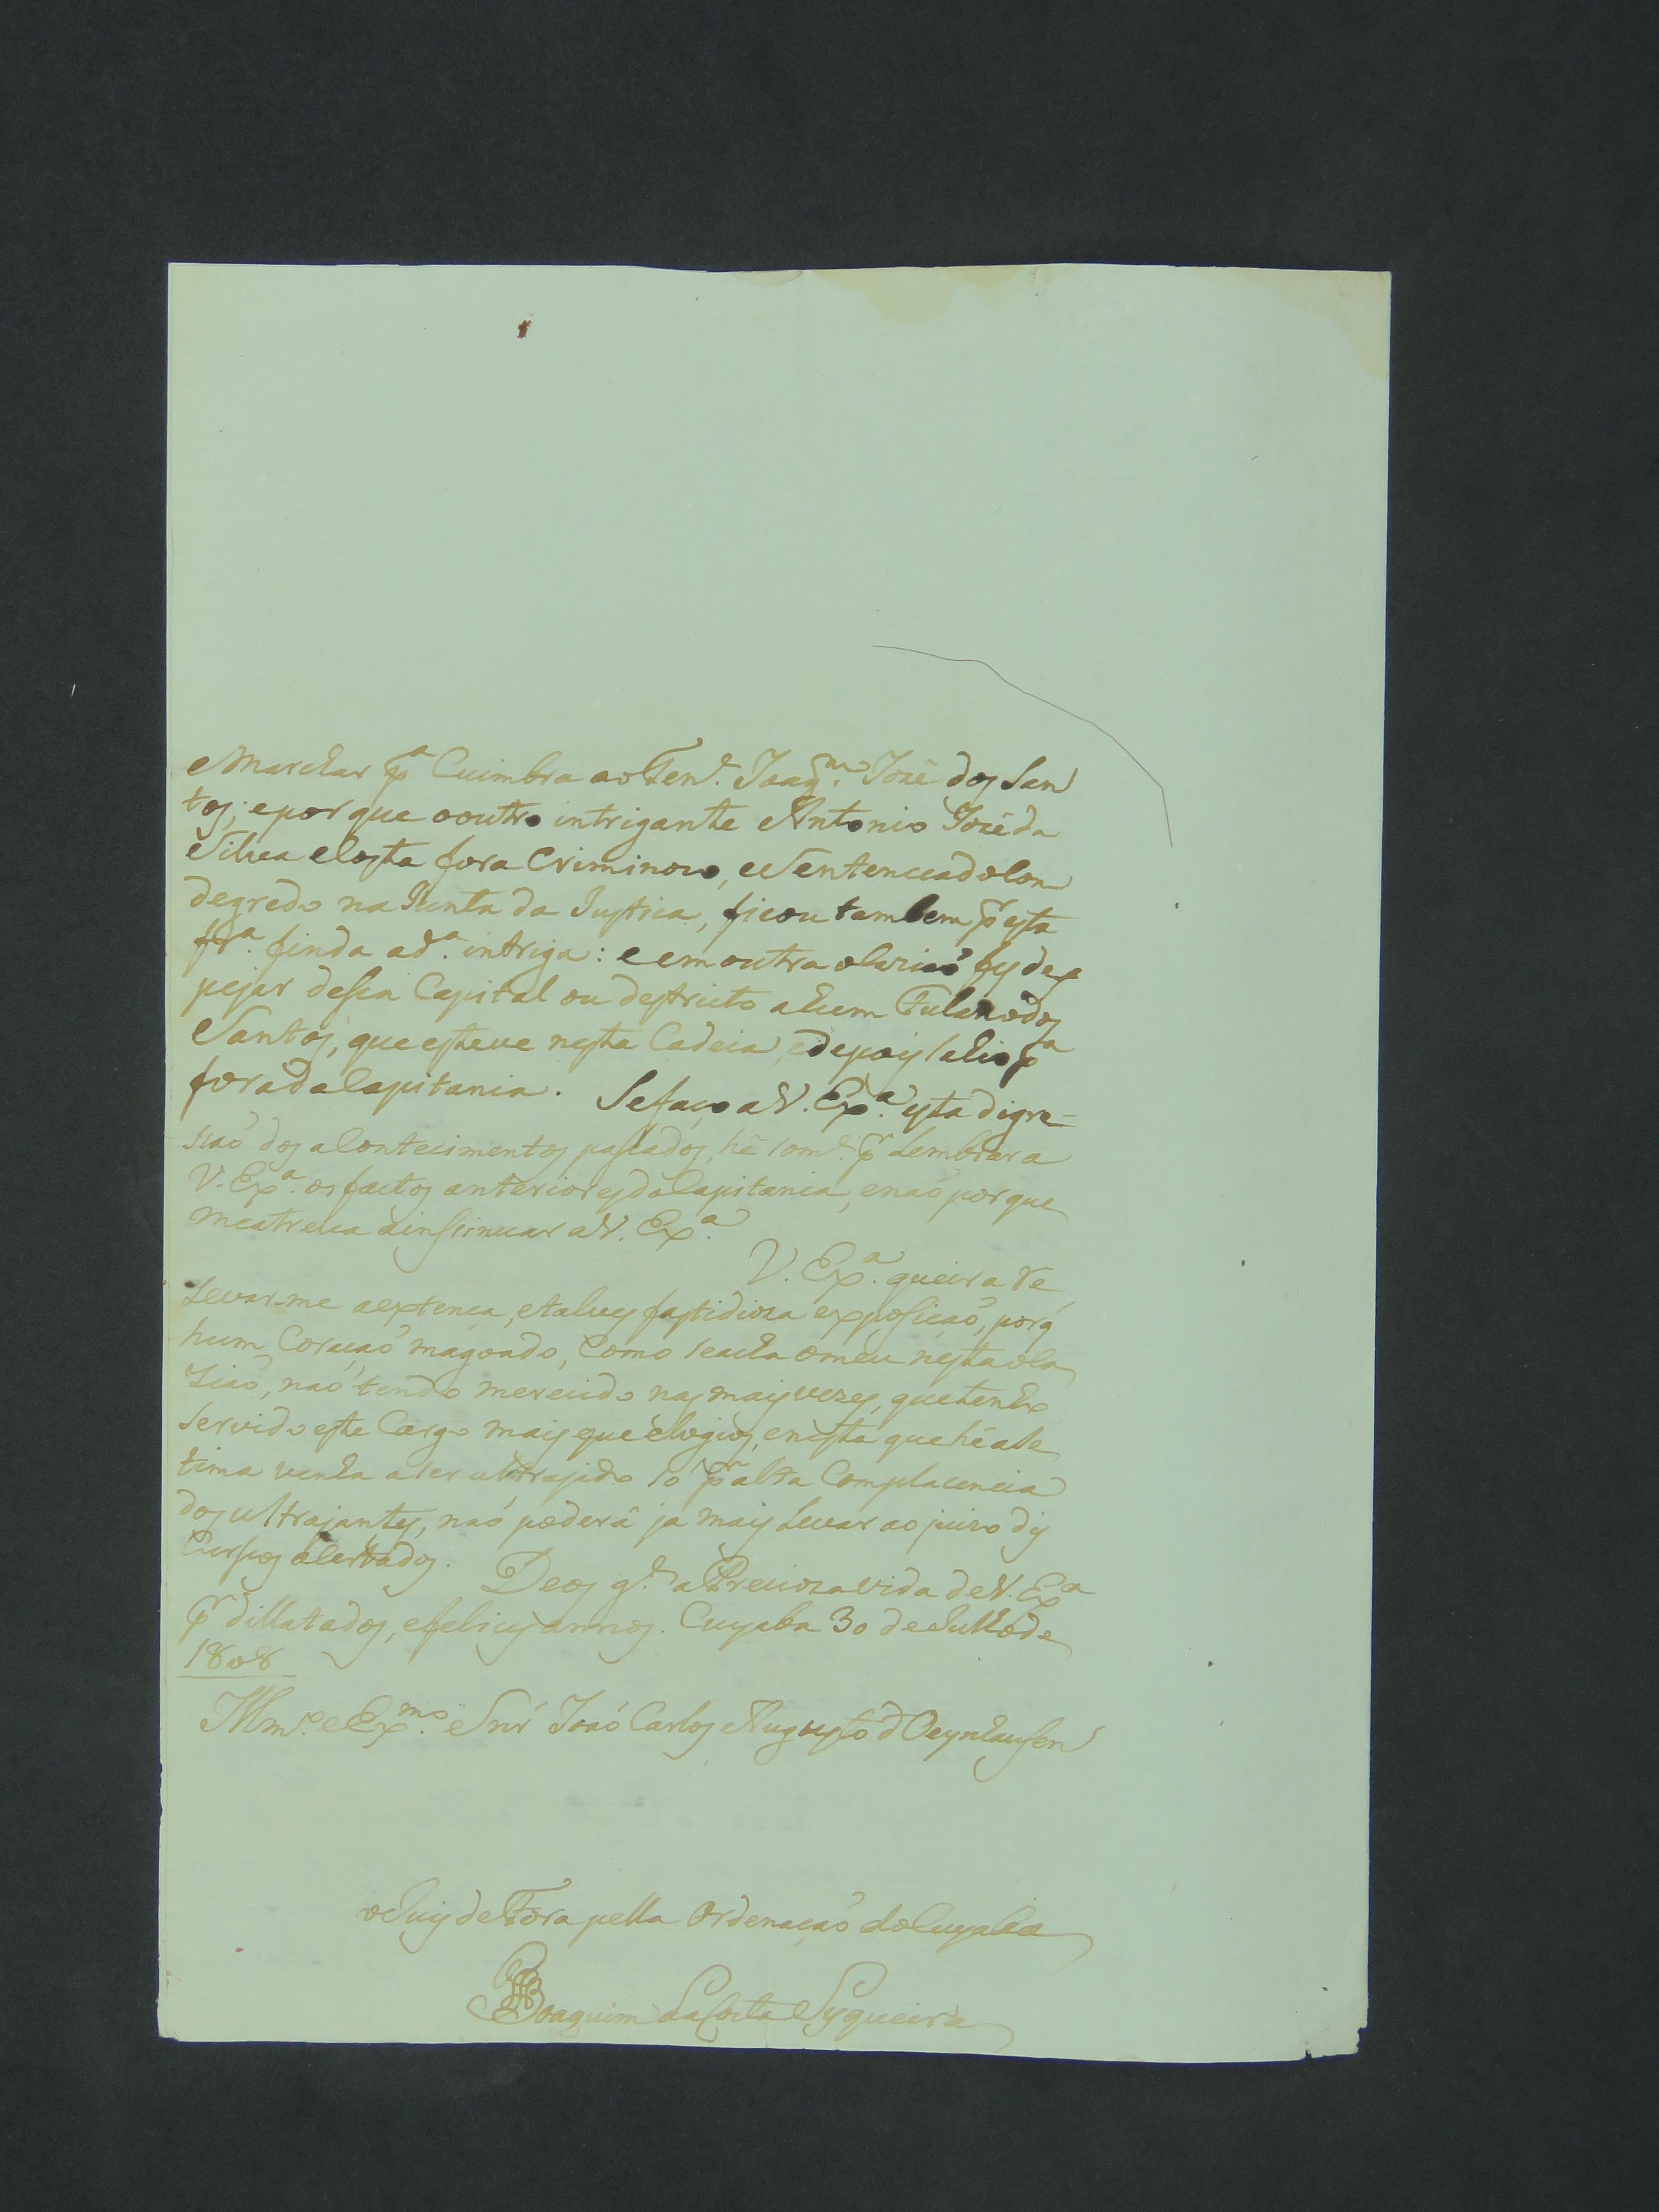 Marchar p.ª Cuimbra ao Ten.e Joaq.m Jozê dos San
tos; e por que o outro intrigante Antonio Jozê da
Silva e Costa fora Criminozo, e Sentenceado com
degredo na Junta da Justica, ficou tambem p.r esta
fr.ª finda a d.ª intriga: e em outra ocaziaõ fes des
pejar dessa Capital ou destricto a hum Fulano dos
Santos, que esteve nesta Cadeia, e depois sahio p.ª
fora da Capitania. Se faço a V. Ex.ª esta digre=
ssaõ dos acontecimentos passados, hê som.e p.r Lembrar a
V. Ex.ª os factos anteriores da Capitania, e naõ por que
me atreva a insinuar a V. Ex.ª
V. Ex.ª queira re
Levar-me a extença, e talves fastidioza exposiçaõ, porq̃
hum Coraçaõ magoado, Como se acha o meu nesta oca
ziaõ, naõ tendo merecido nas mais vezes, que tenho
servido este Cargo mais que elogios, e nesta que hê a ul
tima venha a ser ultrajado só p.r alta Complacencia
dos ultrajantes, naõ poderâ ja mais Levar ao juizo dis
Cursos acertados. Deos g.e a Precioza vida de V. Ex.ª
p.r dillatados, e felices annos. Cuyaba 30 de Julho de
1808
Illm.o e Ex.mo Snr̃ Joaõ Carlos Augusto d'Oeynhausen
o Juis de Fora pella Ordenaçaõ do Cuyaba
Joaquim da Costa Syqueira